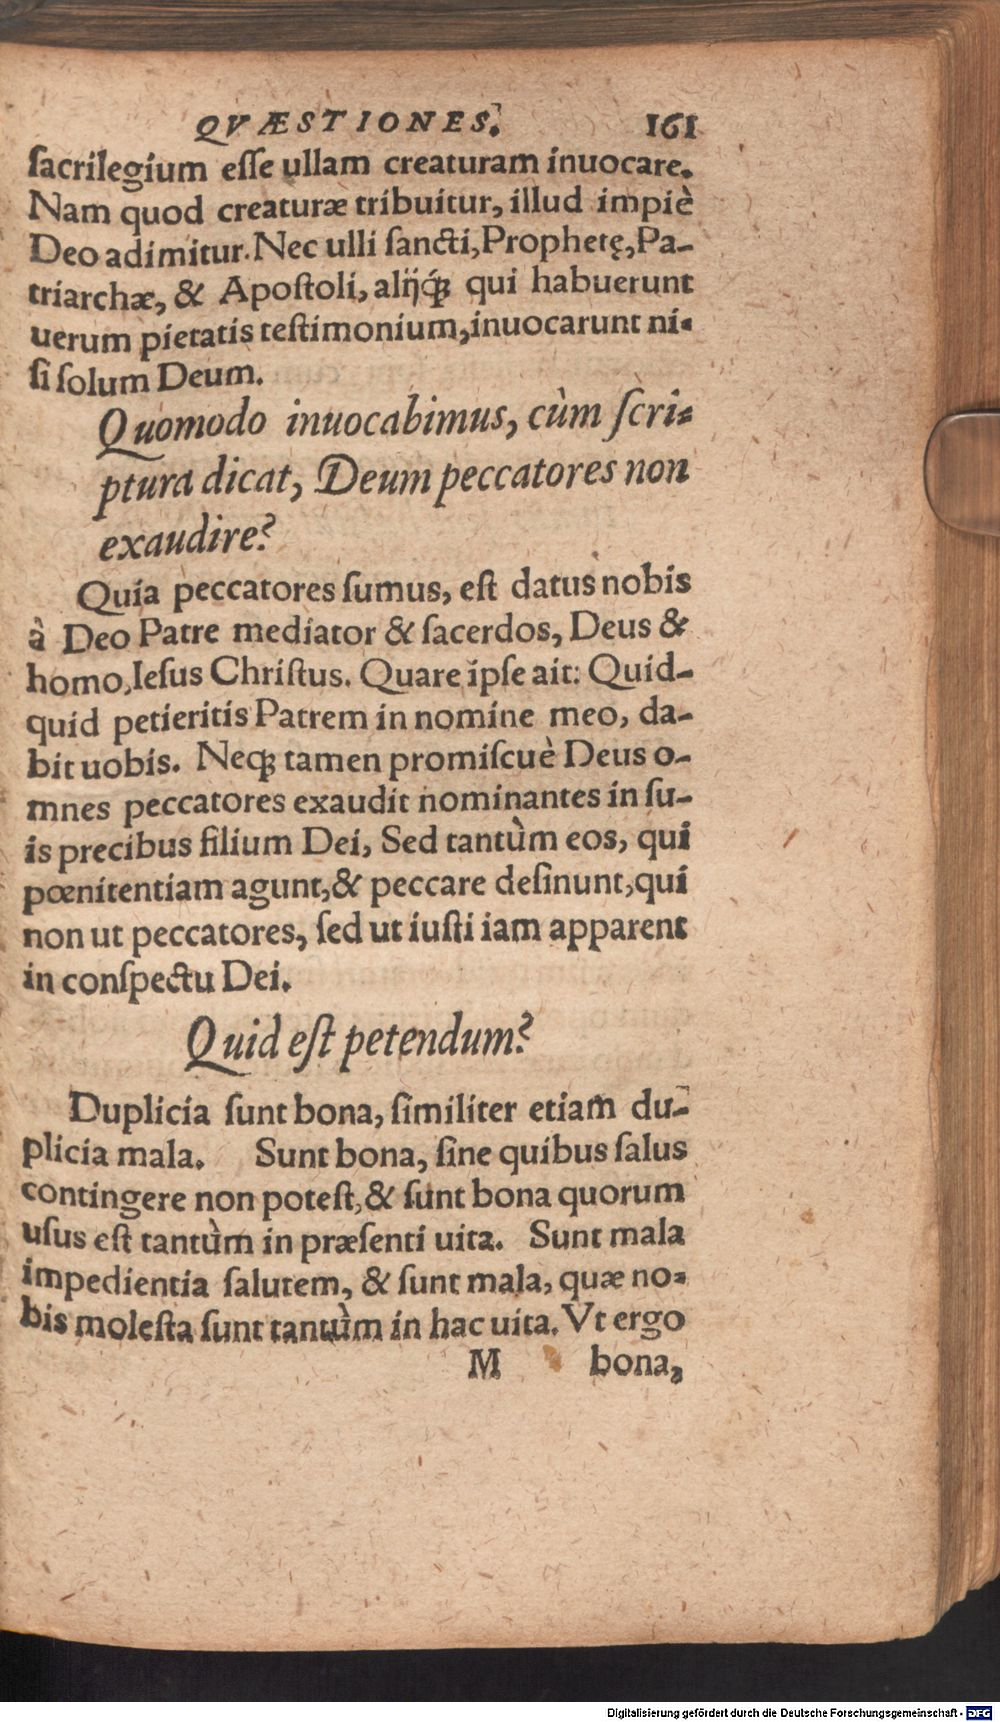 QVÆSTIONES. 161
ſacrilegium eſſe ullam creaturam inuocare.
Nam quod creaturæ tribuitur, illud impiè
Deo adimitur. Nec ulli ſancti, Prophetę, Pa-
triarchæ, & Apoſtoli, alijq́; qui habuerunt
uerum pietatis teſtimonium, inuocarunt ni-
ſi ſolum Deum.
Quomodo inuocabimus, cùm ſcri-
ptura dicat, Deum peccatores non
exaudire?
Quia peccatores ſumus, eſt datus nobis
à Deo Patre mediator & ſacerdos, Deus &
homo, Ieſus Chriſtus. Quare ipſe ait: Quid-
quid petieritis Patrem in nomine meo, da-
bit uobis. Neq; tamen promiſcuè Deus o-
mnes peccatores exaudit nominantes in ſu-
is precibus filium Dei, Sed tantùm eos, qui
pœnitentiam agunt, & peccare deſinunt, qui
non ut peccatores, ſed ut iuſti iam apparent
in conſpectu Dei.
Quid eſt petendum?
Duplicia ſunt bona, ſimiliter etiam du-
plicia mala. Sunt bona, ſine quibus ſalus
contingere non poteſt, & ſunt bona quorum
uſus eſt tantùm in præſenti uita. Sunt mala
impedientia ſalutem, & ſunt mala, quæ no-
bis moleſta ſunt tantùm in hac uita. Vt ergo
M bona,
Digitalisierung gefördert durch die Deutsche Forschungsgemeinschaft - DFG